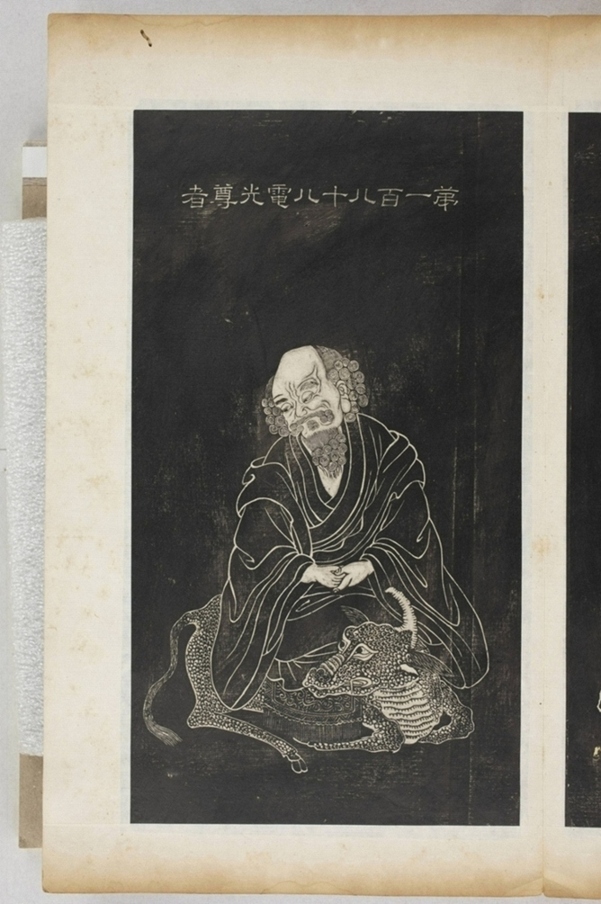 第一百八十八電光尊者